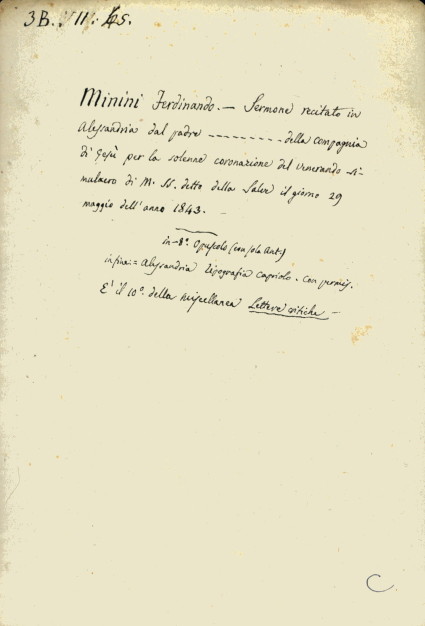 3B. II. 45.
Minini Ferdinando. — Sermone recitato in
Alessandria dal padre --------- della Compagnia
di Gesù per la solenne coronazione del venerando si-
mulacro di M. SS. detto della Salve il giorno 29
maggio dell'anno 1843. —
in-8°. Opuscolo (con sola Ant.)
in fine = Alessandria Tipografia Capriolo. Con permis.
E' il 10°. della miscellanea Lettere critiche —
C.